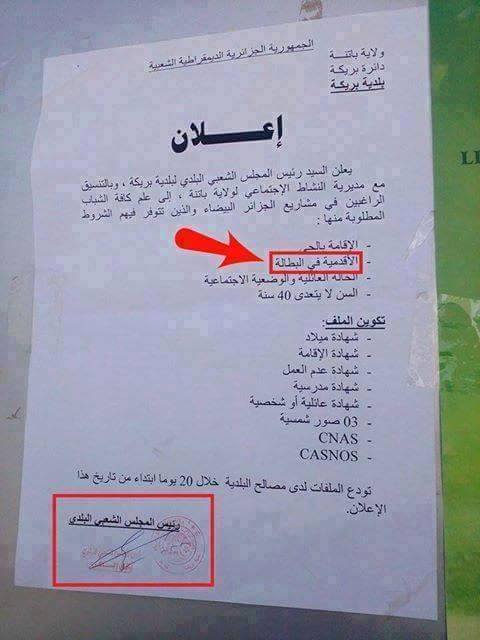 الجمهورية الجزائرية الديمقراطية الشعبية
ولاية باتنة
دائرة بريكة
بلدية بريكة
إعلان
يعلن السيد رئيس المجلس الشعبي البلدي لبلدية بريكة ، وبالتنسيق
مع مديرية النشاط الإجتماعي لولاية باتنة ، إلى علم كافة الشباب
الراغبين في مشاريع الجزائر البيضاء والذين تتوفر فيهم الشروط
المطلوبة منها :
- الإقامة بالحي
- الأقدمية في البطالة
- الحالة العائلية والوضعية الاجتماعية
- السن لا يتعدى 40 سنة
تكوين الملف:
- شهادة ميلاد
- شهادة الإقامة
- شهادة عدم العمل
- شهادة مدرسية
- شهادة عائلية أو شخصية
- 03 صور شمسية
- CNAS
- CASNOS
تودع الملفات لدى مصالح البلدية خلال 20 يوما ابتداء من تاريخ هذا
الإعلان.
رئيس المجلس الشعبي البلدي